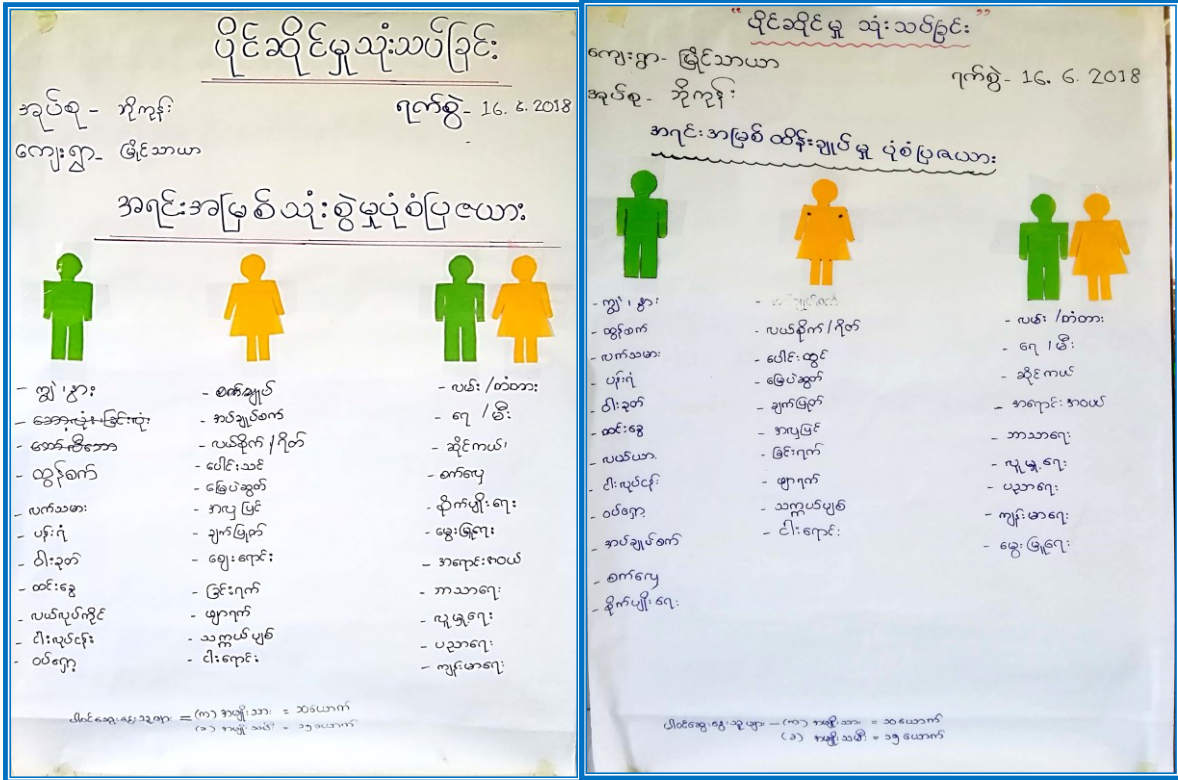 ပိုင်ဆိုင်မှုသုံးသပ်ခြင်း
အုပ်စု - ဘိုကုန်း
ရက်စွဲ - 16. 6. 2018
ကျေးရွာ - မြိုင်သာယာ
အရင်းအမြစ်သုံးစွဲမှုပုံစံပြဇယား
- ကျွဲ၊ နွား
- ထွန်စက်
- လက်သမား
- ပန်းရံ
- ဝါးခုတ်
- ထင်းခွေ
- လယ်လုပ်ကိုင်
- ငါးလုပ်ငန်း
- ဝပ်ရှော့
- စက်ချုပ်
- အပ်ချုပ်စက်
- လယ်စိုက် / ရိတ်
- ပေါင်းသင်
- မြေပဲဆွတ်
- အလှပြင်
- ချက်ပြုတ်
- ဈေးရောင်း
- ခြင်းရက်
- ဖျာရက်
- သက္ကယ်ပျစ်
- ငါးရောင်း
- လမ်း / တံတား
- ရေ / မီး
- ဆိုင်ကယ်၊
- စက်လှေ
- စိုက်ပျိုးရေး
- မွေးမြူရေး
- အရောင်းအဝယ်
- ဘာသာရေး
- လူမှုရေး
- ပညာရေး
- ကျန်းမာရေး
ပါဝင်ဆွေးနွေးသူများ = (က) အမျိုးသား = ၁၀ယောက်
(ခ) အမျိုးသမီး = ၁၅ယောက်
"ပိုင်ဆိုင်မှု သုံးသပ်ခြင်း"
ကျေးရွာ - မြိုင်သာယာ
ရက်စွဲ - 16. 6. 2018
အုပ်စု - ဘိုကုန်း
အရင်းအမြစ်ထိန်းချုပ်မှု ပုံစံပြဇယား
- ကျွဲ၊ နွား
- ထွန်စက်
- လက်သမား
- ပန်းရံ
- ဝါးခုတ်
- ထင်းခွေ
- လယ်ယာ
- ငါးလုပ်ငန်း
- ဝပ်ရှော့
- အပ်ချုပ်စက်
- စက်လှေ
- စိုက်ပျိုးရေး
- လယ်စိုက် / ရိတ်
- ပေါင်းထွင်
- မြေပဲဆွတ်
- ချက်ပြုတ်
- အလှပြင်
- ခြင်းရက်
- ဖျာရက်
- သက္ကယ်ပျစ်
- ငါးရောင်း
- လမ်း / တံတား
- ရေ / မီး
- ဆိုင်ကယ်
- အရောင်းအဝယ်
- ဘာသာရေး
- လူမှုရေး
- ပညာရေး
- ကျန်းမာရေး
- မွေးမြူရေး
ပါဝင်ဆွေးနွေးသူများ - (က) အမျိုးသား = ၁၀ယောက်
(ခ) အမျိုးသမီး = ၁၅ယောက်